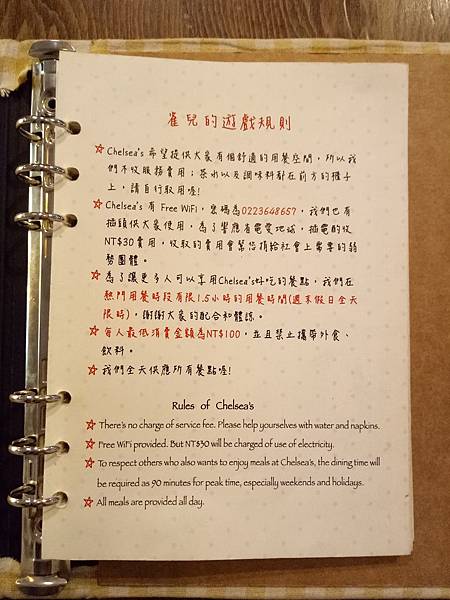 雀兒的遊戲規則
☆Chelsea's 希望提供大家有個舒適的用餐空間，所以我
們不收服務費用；茶水以及調味料都在前方的櫃子
上，請自行取用喔！
☆Chelsea's 有 Free WiFi，密碼為0223648657，我們也有
插頭供大家使用，為了響應省電愛地球，插電酌收
NT$30費用，收取的費用會幫您捐給社會上需要的弱
勢團體。
☆為了讓更多人可以享用Chelsea's好吃的餐點，我們在
熱門用餐時段有限1.5小時的用餐時間(週末假日全天
限時)，謝謝大家的配合和體諒。
☆每人最低消費金額為NT$100，並且禁止攜帶外食、
飲料。
☆我們全天供應所有餐點喔！
Rules of Chelsea's
☆There's no charge of service fee. Please help yourselves with water and napkins.
☆Free WiFi provided. But NT$30 will be charged of use of electricity.
☆To respect others who also wants to enjoy meals at Chelsea's, the dining time will
be required as 90 minutes for peak time, especially weekends and holidays.
☆All meals are provided all day.